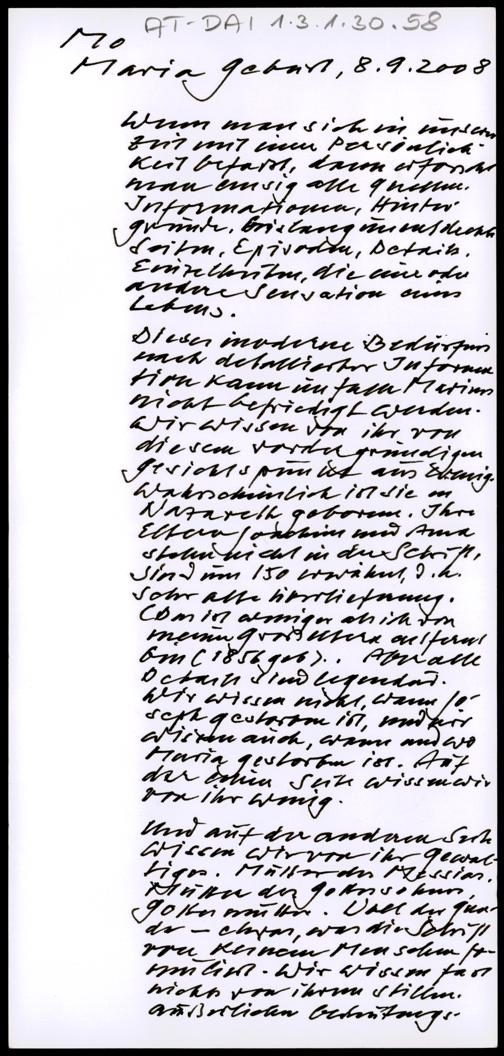 AT-DAI 1.3.1.30.58
Mo
Maria Geburt, 8.9.2008
Wenn man sich in unserer
Zeit mit einer Persönlich-
keit befasst, dann erforscht
man emsig alle Quellen.
Informationen, Hinter-
gründe, bislang unentdeckte
Seiten, Episoden, Details,
Einzelheiten, die eine oder
andere Sensation eines
Lebens.
Dieses moderne Bedürfnis
nach detaillierter Informa
tion kann im Falle Mariens
nicht befriedigt werden.
Wir wissen von ihr von
diesem vordergründigen
Gesichtspunkt aus wenig.
Wahrscheinlich ist sie in
Nazareth geboren. Ihre
Eltern Joachim und Anna
stehn nicht in der Schrift,
sind um 150 erwähnt, d.h.
sehr alte Überlieferung.
(Das ist weniger als ich von
meinen Großeltern entfernt
bin (1856 geb). Aber alle
Details sind legendär.
Wir wissen nicht, wann Jo-
seph gestorben ist, und wir
wissen auch, wann und wo
Maria gestorben ist. Auf
der einen Seite wissen wir
von ihr wenig.
Und auf der anderen Seite
wissen wir von ihr Gewal-
tiges. Mutter des Messias,
Mutter des Gottessohnes,
Gottesmutter. Voll der Gna-
de – etwas, was die Schrift
von keinem Menschen for-
muliert. Wir wissen fast
nichts von ihrem stillen,
äußerlichen bedeutungs-